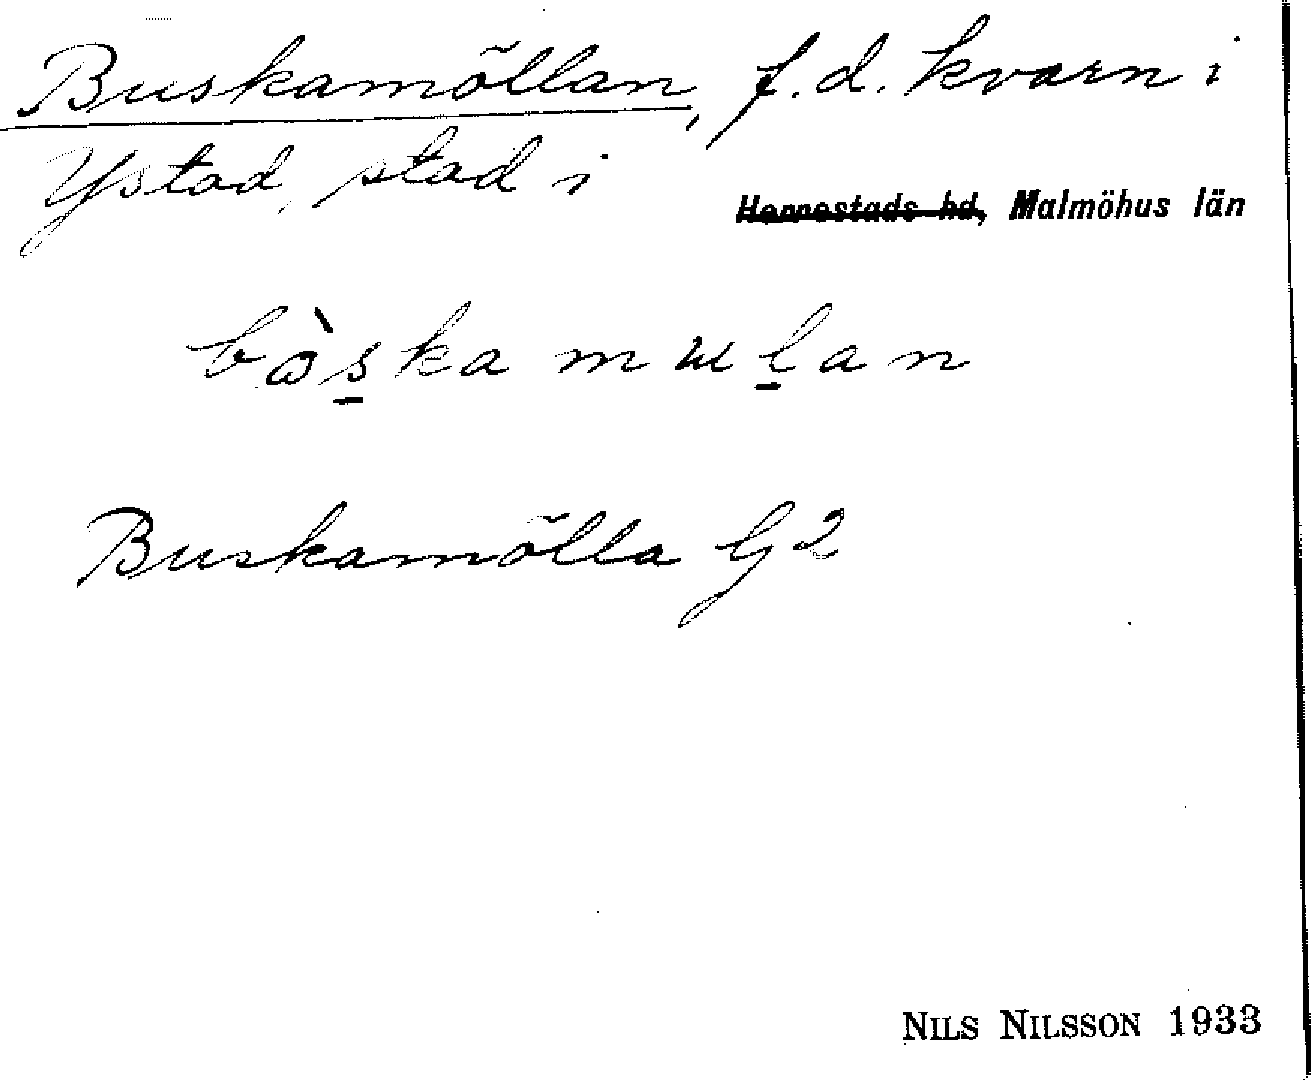 Buskamöllan, f.d. kvarn i
Ystad, stad i
Herrestads hd, Malmöhus län
bɷ̀s̱ka mɯḻan
Buskamölla G2
NILS NILSSON 1933